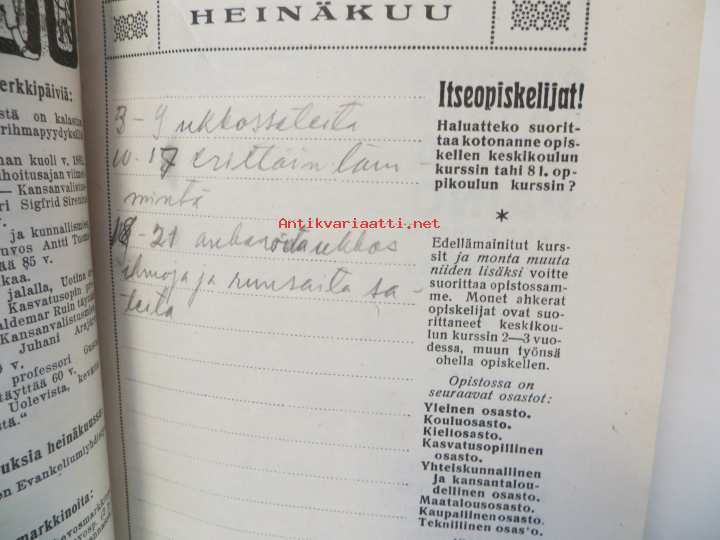 HEINÄKUU
erkkipäiviä:
stä on
rihmapyydyksillä
nan kuoli v.
ahoitusajan
— Kansanvalistus
ri Sigfrid
ja kunnallismies
uvos Antti
ää 85 v.
kaa.
jalalla, Uotina
Kasvatusopin
aldemar Ruin
Kansanvalistusmies
Juhani
v.
professori
täyttää 60 v.
Uolevista,
stä."
uksia heinäkuussa:
on
markkinoita:
3-9 ukkossateita
10-17 erittäin läm-
mintä
18-21 ankaroita ukkos
ilmoja ja runsaita sa-
teita
Itseopiskelijat!
Haluatteko suorit-
taa kotonanne opis-
kellen keskikoulun
kurssin tahi 8 l. op-
pikoulun kurssin?
*
Edellämainitut kurs-
sit ja monta muuta
niiden lisäksi voitte
suorittaa opistossam-
me. Monet ahkerat
opiskelijat ovat suo-
rittaneet keskikou-
lun kurssin 2—3 vuo-
dessa, muun työnsä
ohella opiskellen.
Opistossa on
seuraavat osastot:
Yleinen osasto.
Kouluosasto.
Kieliosasto.
Kasvatusopillinen
osasto.
Yhteiskunnallinen
ja kansantalou-
dellinen osasto.
Maatalousosasto.
Kaupallinen osasto.
Teknillinen osasto.
Antikvariaatti.net